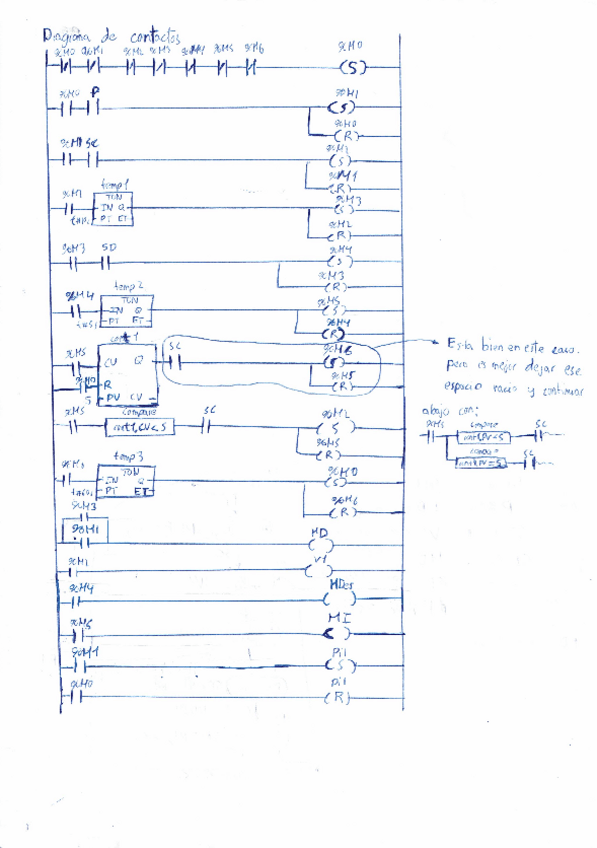 Diagrama de contactos
%M0 %M1 %M2 %M3 %M4 %M5 %M6 %M0
(S)
%M0 P %M1
(S)
%M0
(R)
%M1 SC %M2
(S)
%M1
(R)
temp1
TON
IN Q
PT ET
%M3
(S)
%M2
(R)
%M3 SD %M4
(S)
%M3
(R)
%M4 temp2
TON
IN Q
PT ET
%M5
(S)
%M4
(R)
%M5 CU Q SC %M6
(S)
R
5 PV CV
%M5
(R)
%M5 compare SC %M2
cont1.CV<5
(S)
%M5
(R)
temp3
TON
IN Q
PT ET
%M0
(S)
%M6
(R)
%M3
%M1 MD
( )
V1
( )
%M4
( )
MI
( )
Pil
(S)
%M0 Pil
(R)
Esta bien en este caso.
pero es mejor dejar ese
espacio vacio y continuar
abajo con:
%M5 compare SC
SC